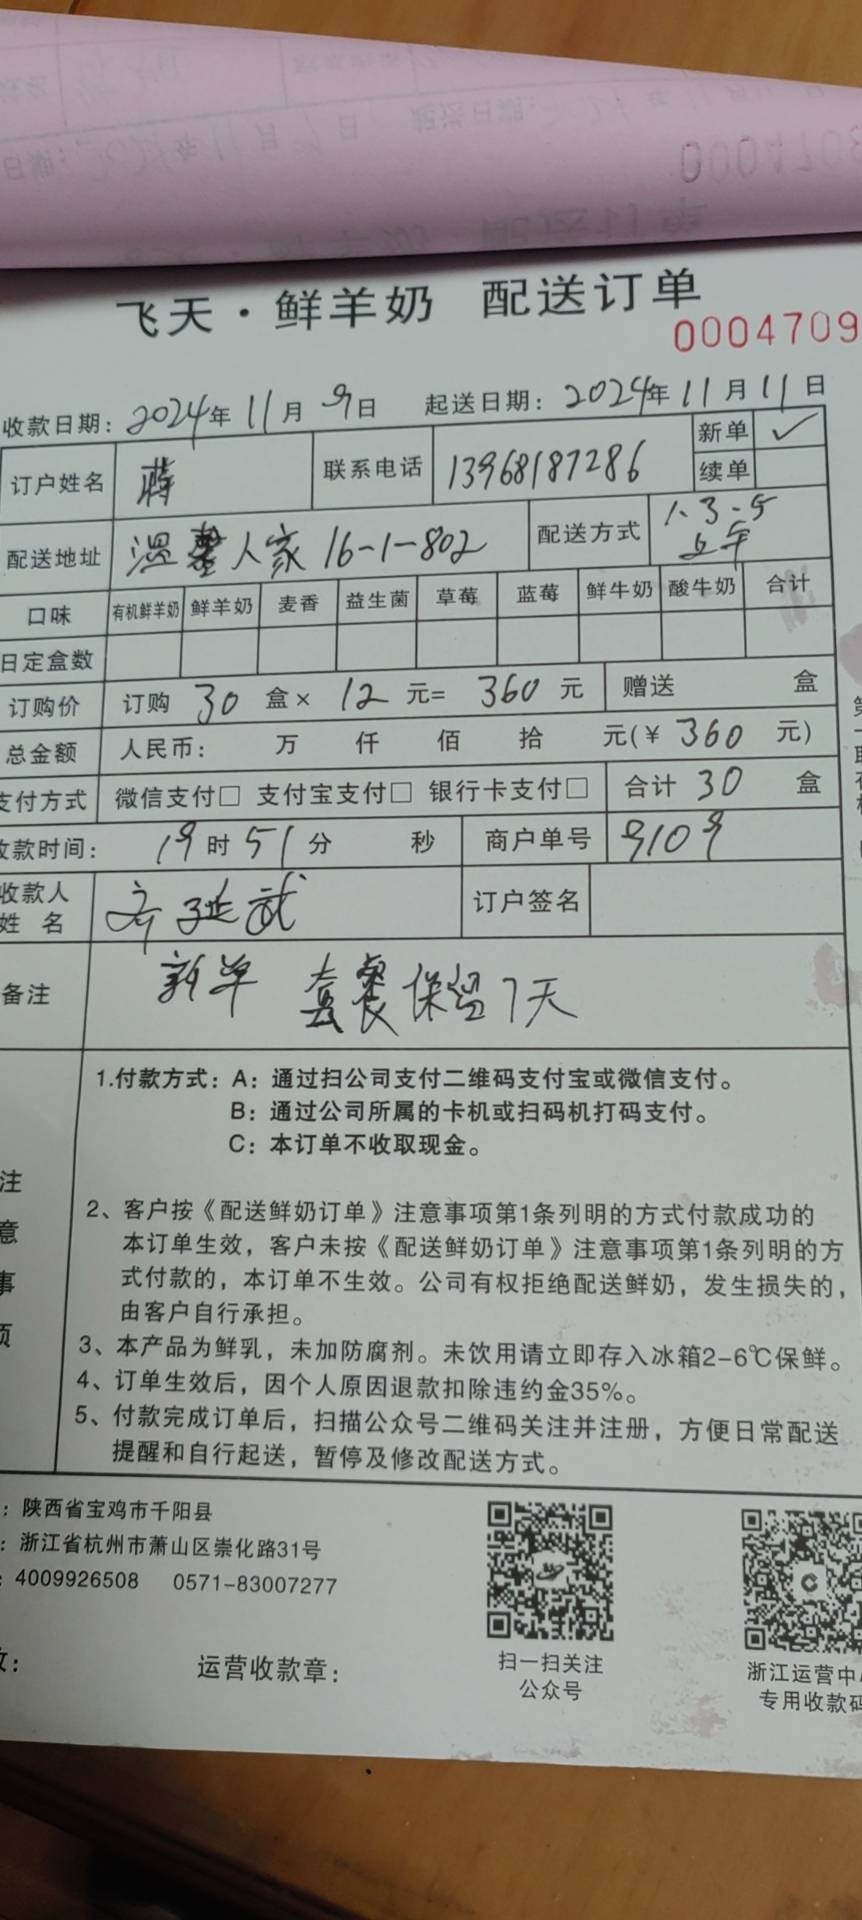 飞天·鲜羊奶 配送订单
0004709
收款日期：2024年11月9日 起送日期：2024年11月11日
订户姓名 蒋 联系电话 13968187286 新单 ✓
续单
配送地址 温馨人家 16-1-802 配送方式 1、3、5
上午
口味 有机鲜羊奶 鲜羊奶 麦香 益生菌 草莓 蓝莓 鲜牛奶 酸牛奶 合计
日定盒数
订购价 订购 30 盒× 12 元= 360 元 赠送 盒
总金额 人民币： 万 仟 佰 拾 元(¥ 360 元)
支付方式 微信支付□ 支付宝支付□ 银行卡支付□ 合计 30 盒
收款时间： 19时51分 秒 商户单号 9109
收款人
姓 名 延武 订户签名
备注 新单 套餐保留7天
注
意
事
项
1.付款方式：A：通过扫公司支付二维码支付宝或微信支付。
B：通过公司所属的卡机或扫码机打码支付。
C：本订单不收取现金。
2、客户按《配送鲜奶订单》注意事项第1条列明的方式付款成功的
本订单生效，客户未按《配送鲜奶订单》注意事项第1条列明的方
式付款的，本订单不生效。公司有权拒绝配送鲜奶，发生损失的，
由客户自行承担。
3、本产品为鲜乳，未加防腐剂。未饮用请立即存入冰箱2-6℃保鲜。
4、订单生效后，因个人原因退款扣除违约金35%。
5、付款完成订单后，扫描公众号二维码关注并注册，方便日常配送
提醒和自行起送，暂停及修改配送方式。
：陕西省宝鸡市千阳县
：浙江省杭州市萧山区崇化路31号
：4009926508 0571-83007277
运营收款章：
扫一扫关注
公众号
浙江运营中
专用收款码